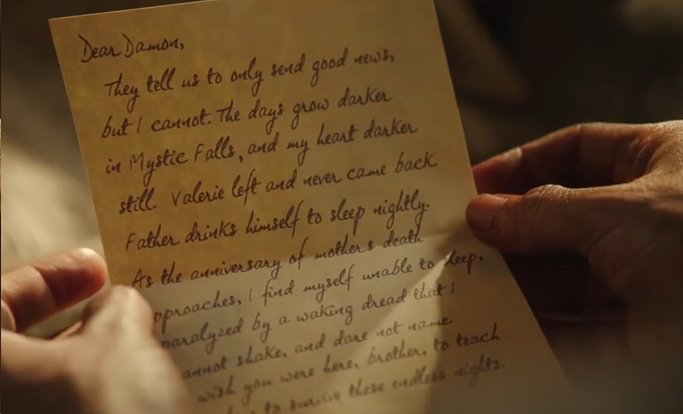 Dear Damon,
They tell us to only send good news,
but I cannot. The days grow darker
in Mystic Falls, and my heart darker
still. Valerie left and never came back
Father drinks himself to sleep nightly.
As the anniversary of mother's death
pproaches, I find myself unable to sleep,
paralyzed by a waking dread that I
annot shake, and dare not name.
wish you were here, brother, to teach
to survive these endless nights.